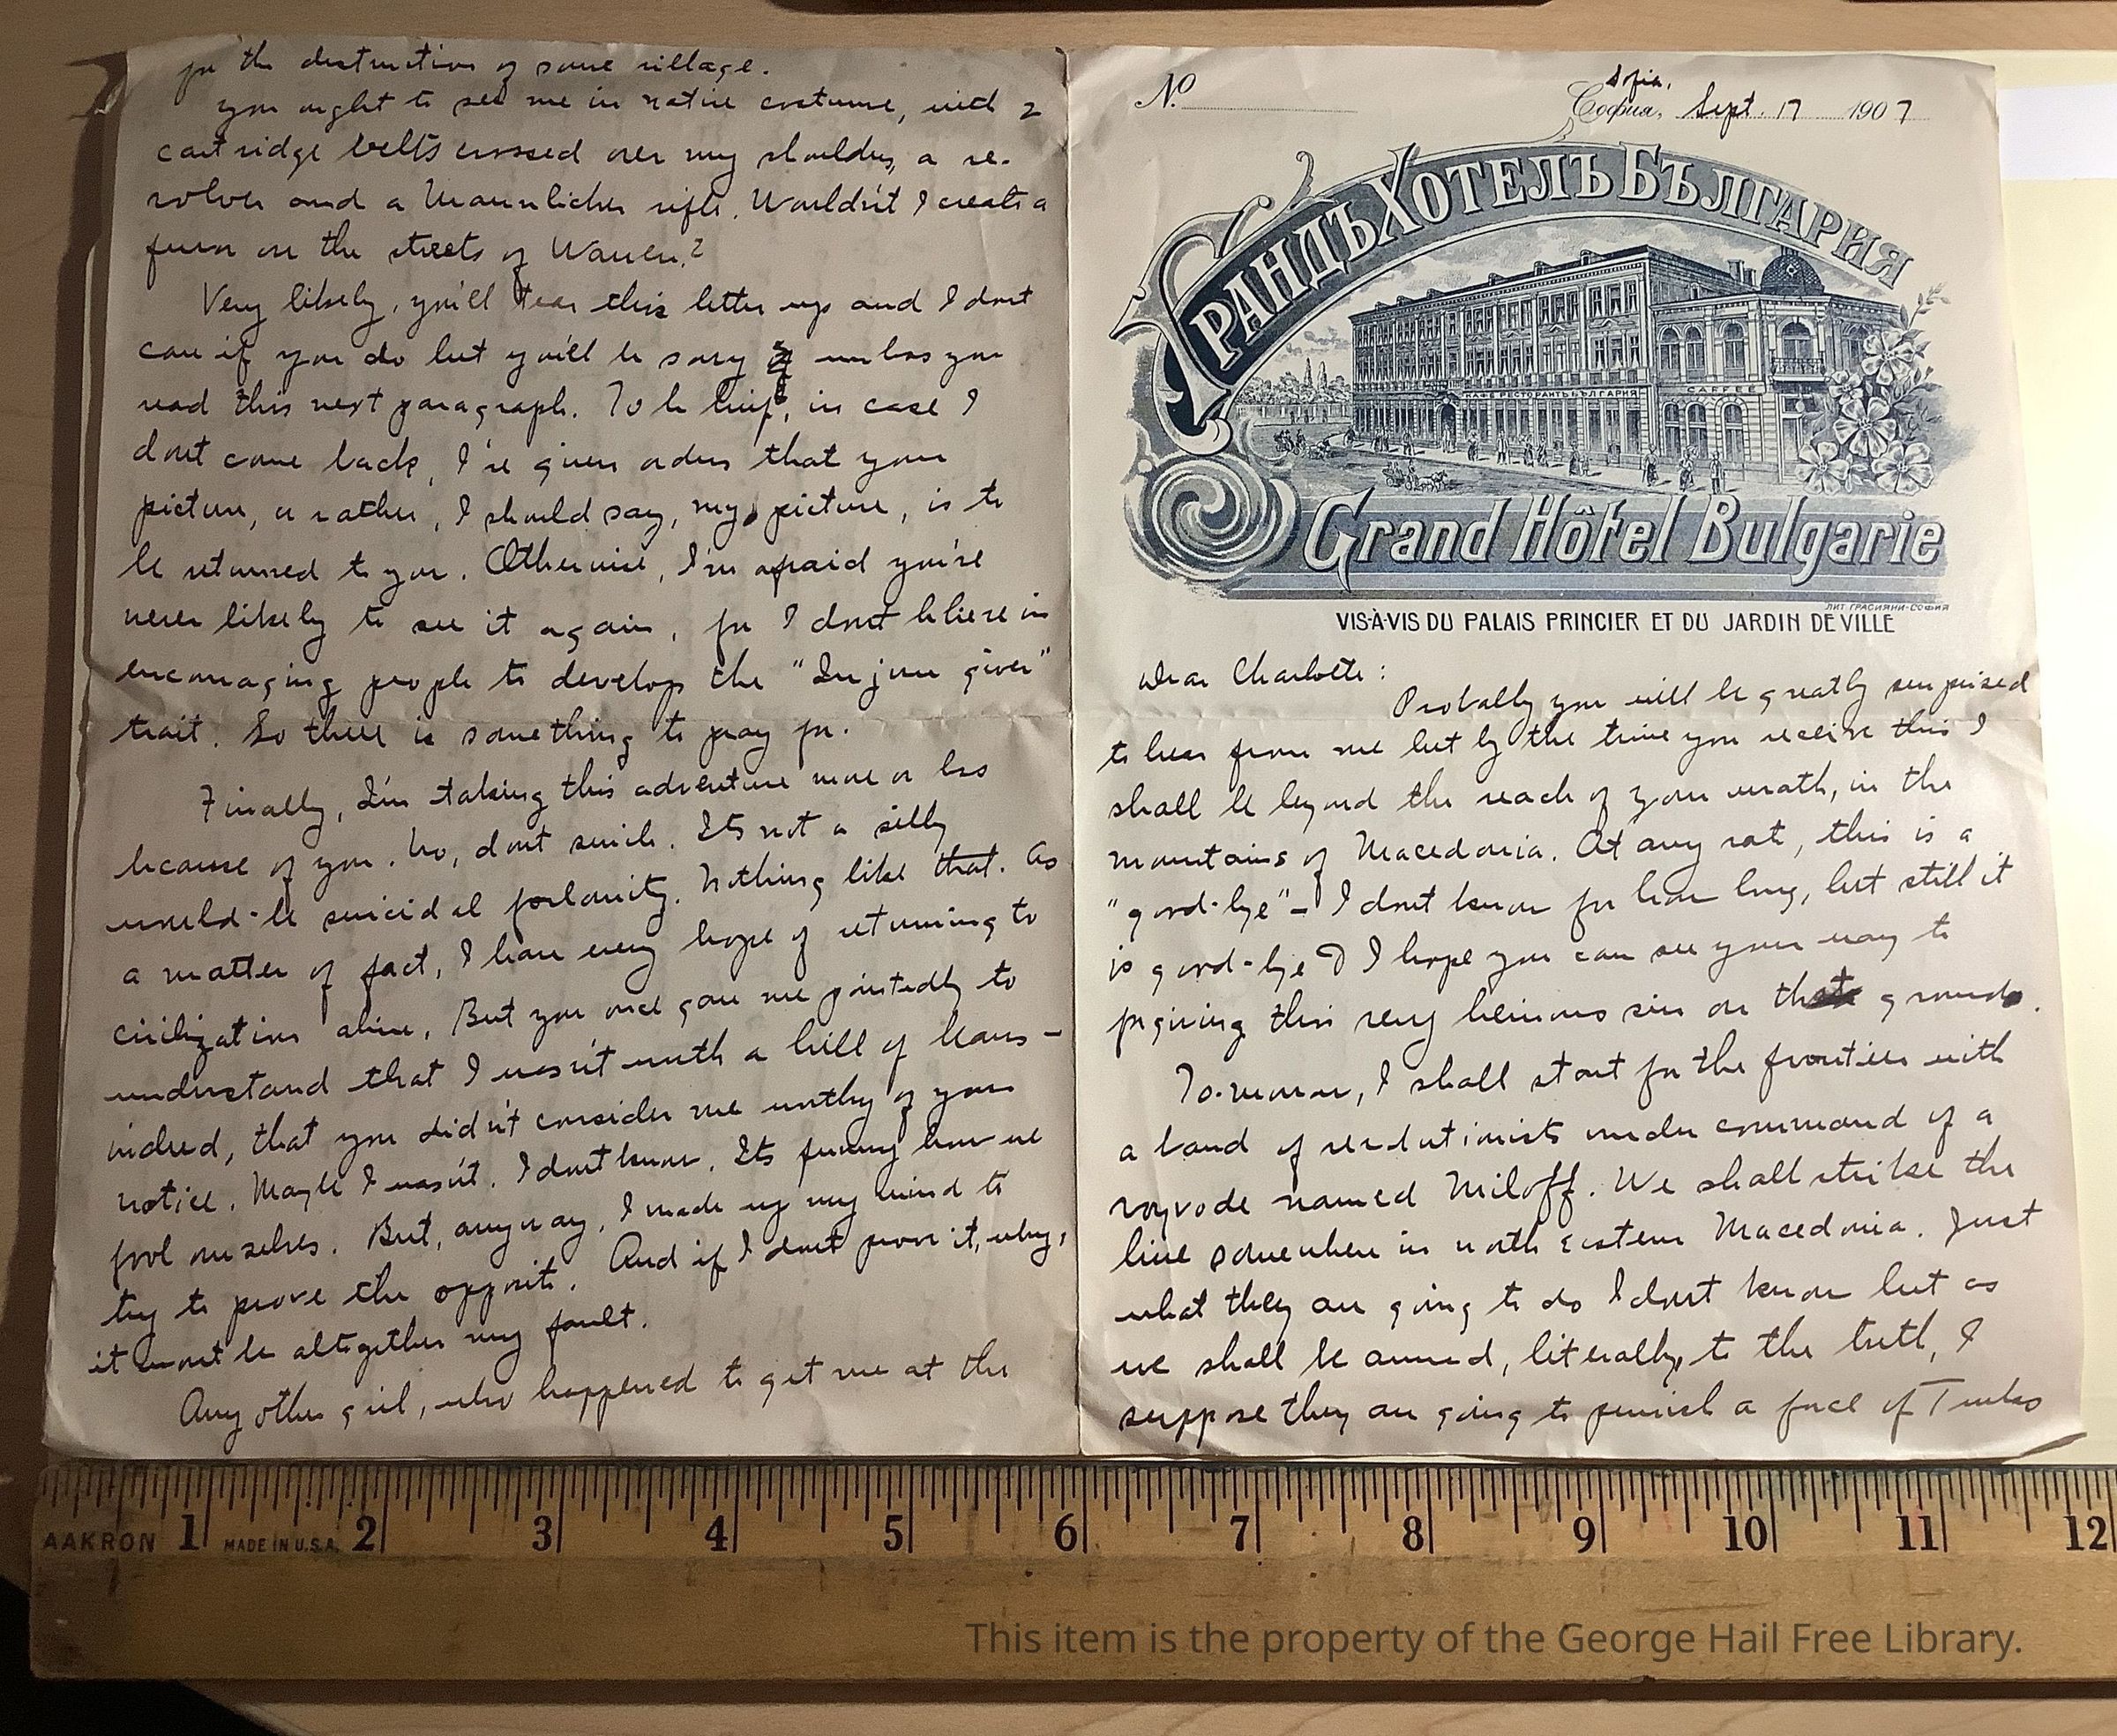 for the destruction of some village.
You ought to see me in native costume, with 2
cartridge belts crossed over my shoulders, a re-
volver and a Mannlicher rifle. Wouldn't I create a
furor on the streets of Warren?
Very likely, you'll tear this letter up and I dont
care if you do but you'll be sorry unless you
read this next paragraph. To be brief, in case I
dont come back, I've given orders that your
picture, or rather, I should say, my picture, is to
be returned to you. Otherwise, I'm afraid you're
never likely to see it again, for I dont believe in
encouraging people to develop the "Injun giver"
trait. So there is something to pray for.
Finally, I'm taking this adventure more or less
because of you. No, dont smile. Its not a silly
would-be suicidal forlornity. Nothing like that. As
a matter of fact, I have every hope of returning to
civilization alive. But you once gave me pointedly to
understand that I wasn't worth a hill of beans –
indeed, that you didn't consider me worthy of your
notice. Maybe I wasn't. I dont know. Its funny how we
fool ourselves. But, anyway, I made up my mind to
try to prove the opposite. And if I dont prove it, why,
it wont be altogether my fault.
Any other girl, who happened to get me at the
No
Sofia,
София, Sept. 17 1907
ГРАНДЪ ХОТЕЛЪ БЪЛГАРИЯ
CAFFEE
КАФЕ РЕСТОРАНТЪ БЪЛГАРИЯ
Grand Hôtel Bulgarie
ЛИТ ГРАСИЯНИ-СОФИЯ
VIS-À-VIS DU PALAIS PRINCIER ET DU JARDIN DE VILLE
Dear Charlotte:
Probably you will be greatly surprised
to hear from me but by the time you receive this I
shall be beyond the reach of your wrath, in the
mountains of Macedonia. At any rate, this is a
"good-bye" – I dont know for how long, but still it
is good-bye I hope you can see your way to
forgiving this very heinous sin on that grounds.
To-morrow, I shall start for the frontier with
a band of revolutionists under command of a
voyvode named Miloff. We shall strike the
line somewhere in north eastern Macedonia. Just
what they are going to do I dont know but as
we shall be armed, literally, to the teeth, I
suppose they are going to punish a force of Turks
AAKRON MADE IN U.S.A.
1 2 3 4 5 6 7 8 9 10 11 12
This item is the property of the George Hail Free Library.